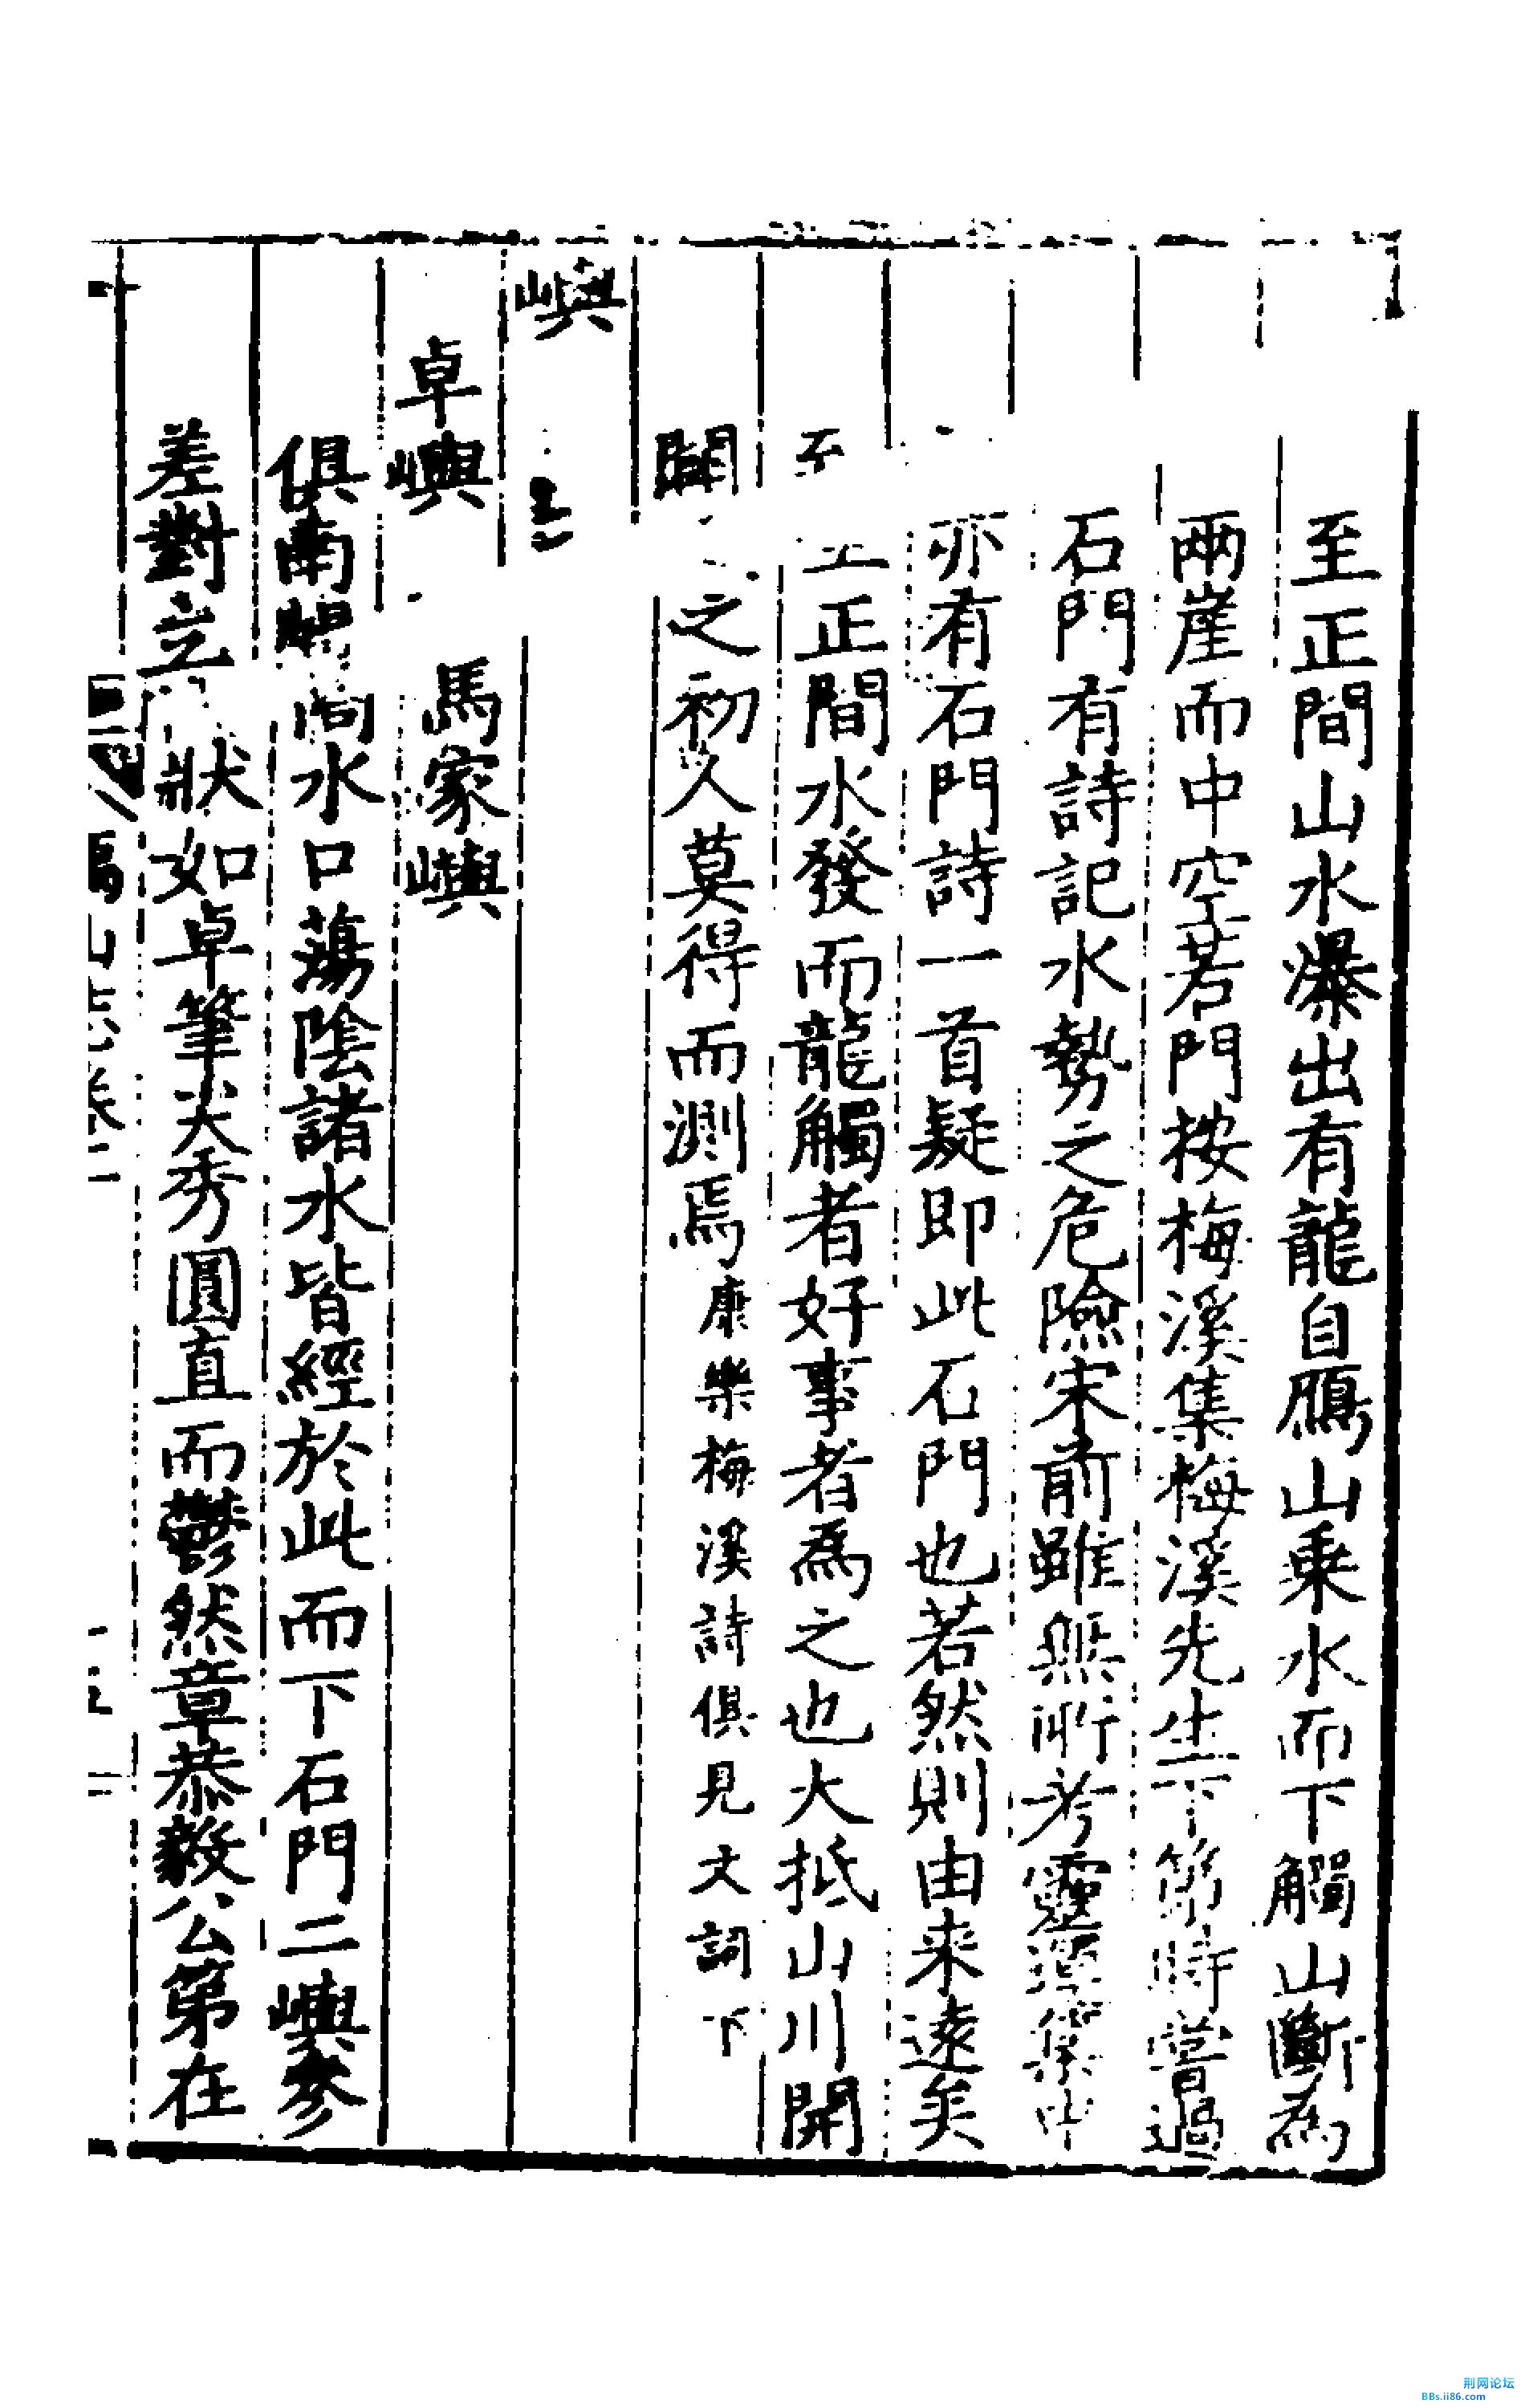 至正間山水瀑出有龍自鴈山乘水而下觸山斷為
兩崖而中空若門按梅溪集梅溪先生下第時嘗過
石門有詩記水勢之危險宋前雖無所考靈運集中
亦有石門詩一首疑即此石門也若然則由来遠矣
至正間水發而龍觸者好事者為之也大抵山川開
闢之初人莫得而測焉康樂梅溪詩俱見文詞下
嶼
卓嶼 馬家嶼
俱南閤水口蕩陰諸水皆經於此而下石門二嶼參
差對立狀如卓筆尖秀圓直而鬱然章恭毅公第在
鴈山志卷二
荆网论坛
BBs.ii86.com